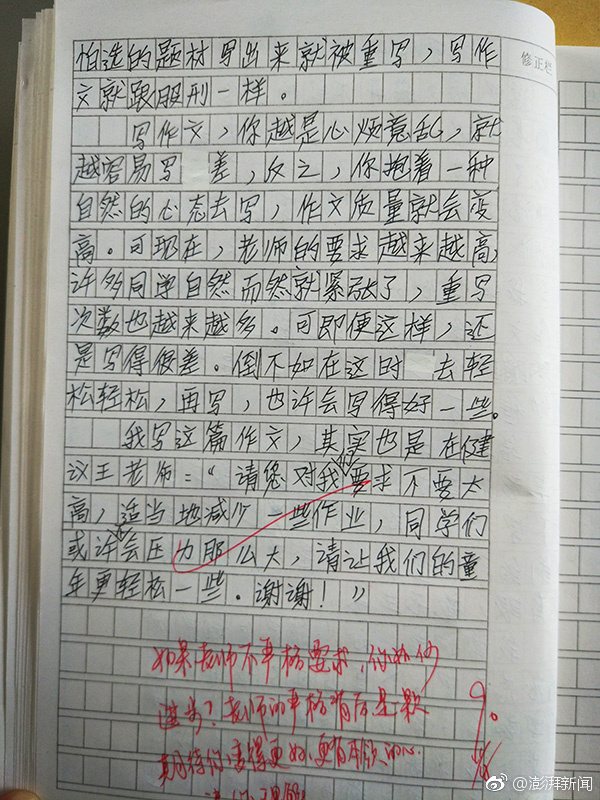 修正栏
怕选的题材写出来就被重写，写作
文就跟服刑一样。
写作文，你越是心烦意乱，就
越容易写 差，反之，你抱着一种
自然的心态去写，作文质量就会变
高。可现在，老师的要求越来越高，
许多同学自然而然就紧张了，重写
次数也越来越多。可即便这样，还
是写得很差。倒不如在这时 去轻
松轻松，再写，也许会写得好一些。
我写这篇作文，其实也是在健
议王老师：“请您对我们要求不要太
高，适当地减少一些作业，同学们
或许会压力那么大，请让我们的童
年更轻松一些。谢谢！”
如果老师不严格要求，你
进步？老师的严格背后是颗
期待你变得更好、更有本领的心
@澎湃新闻